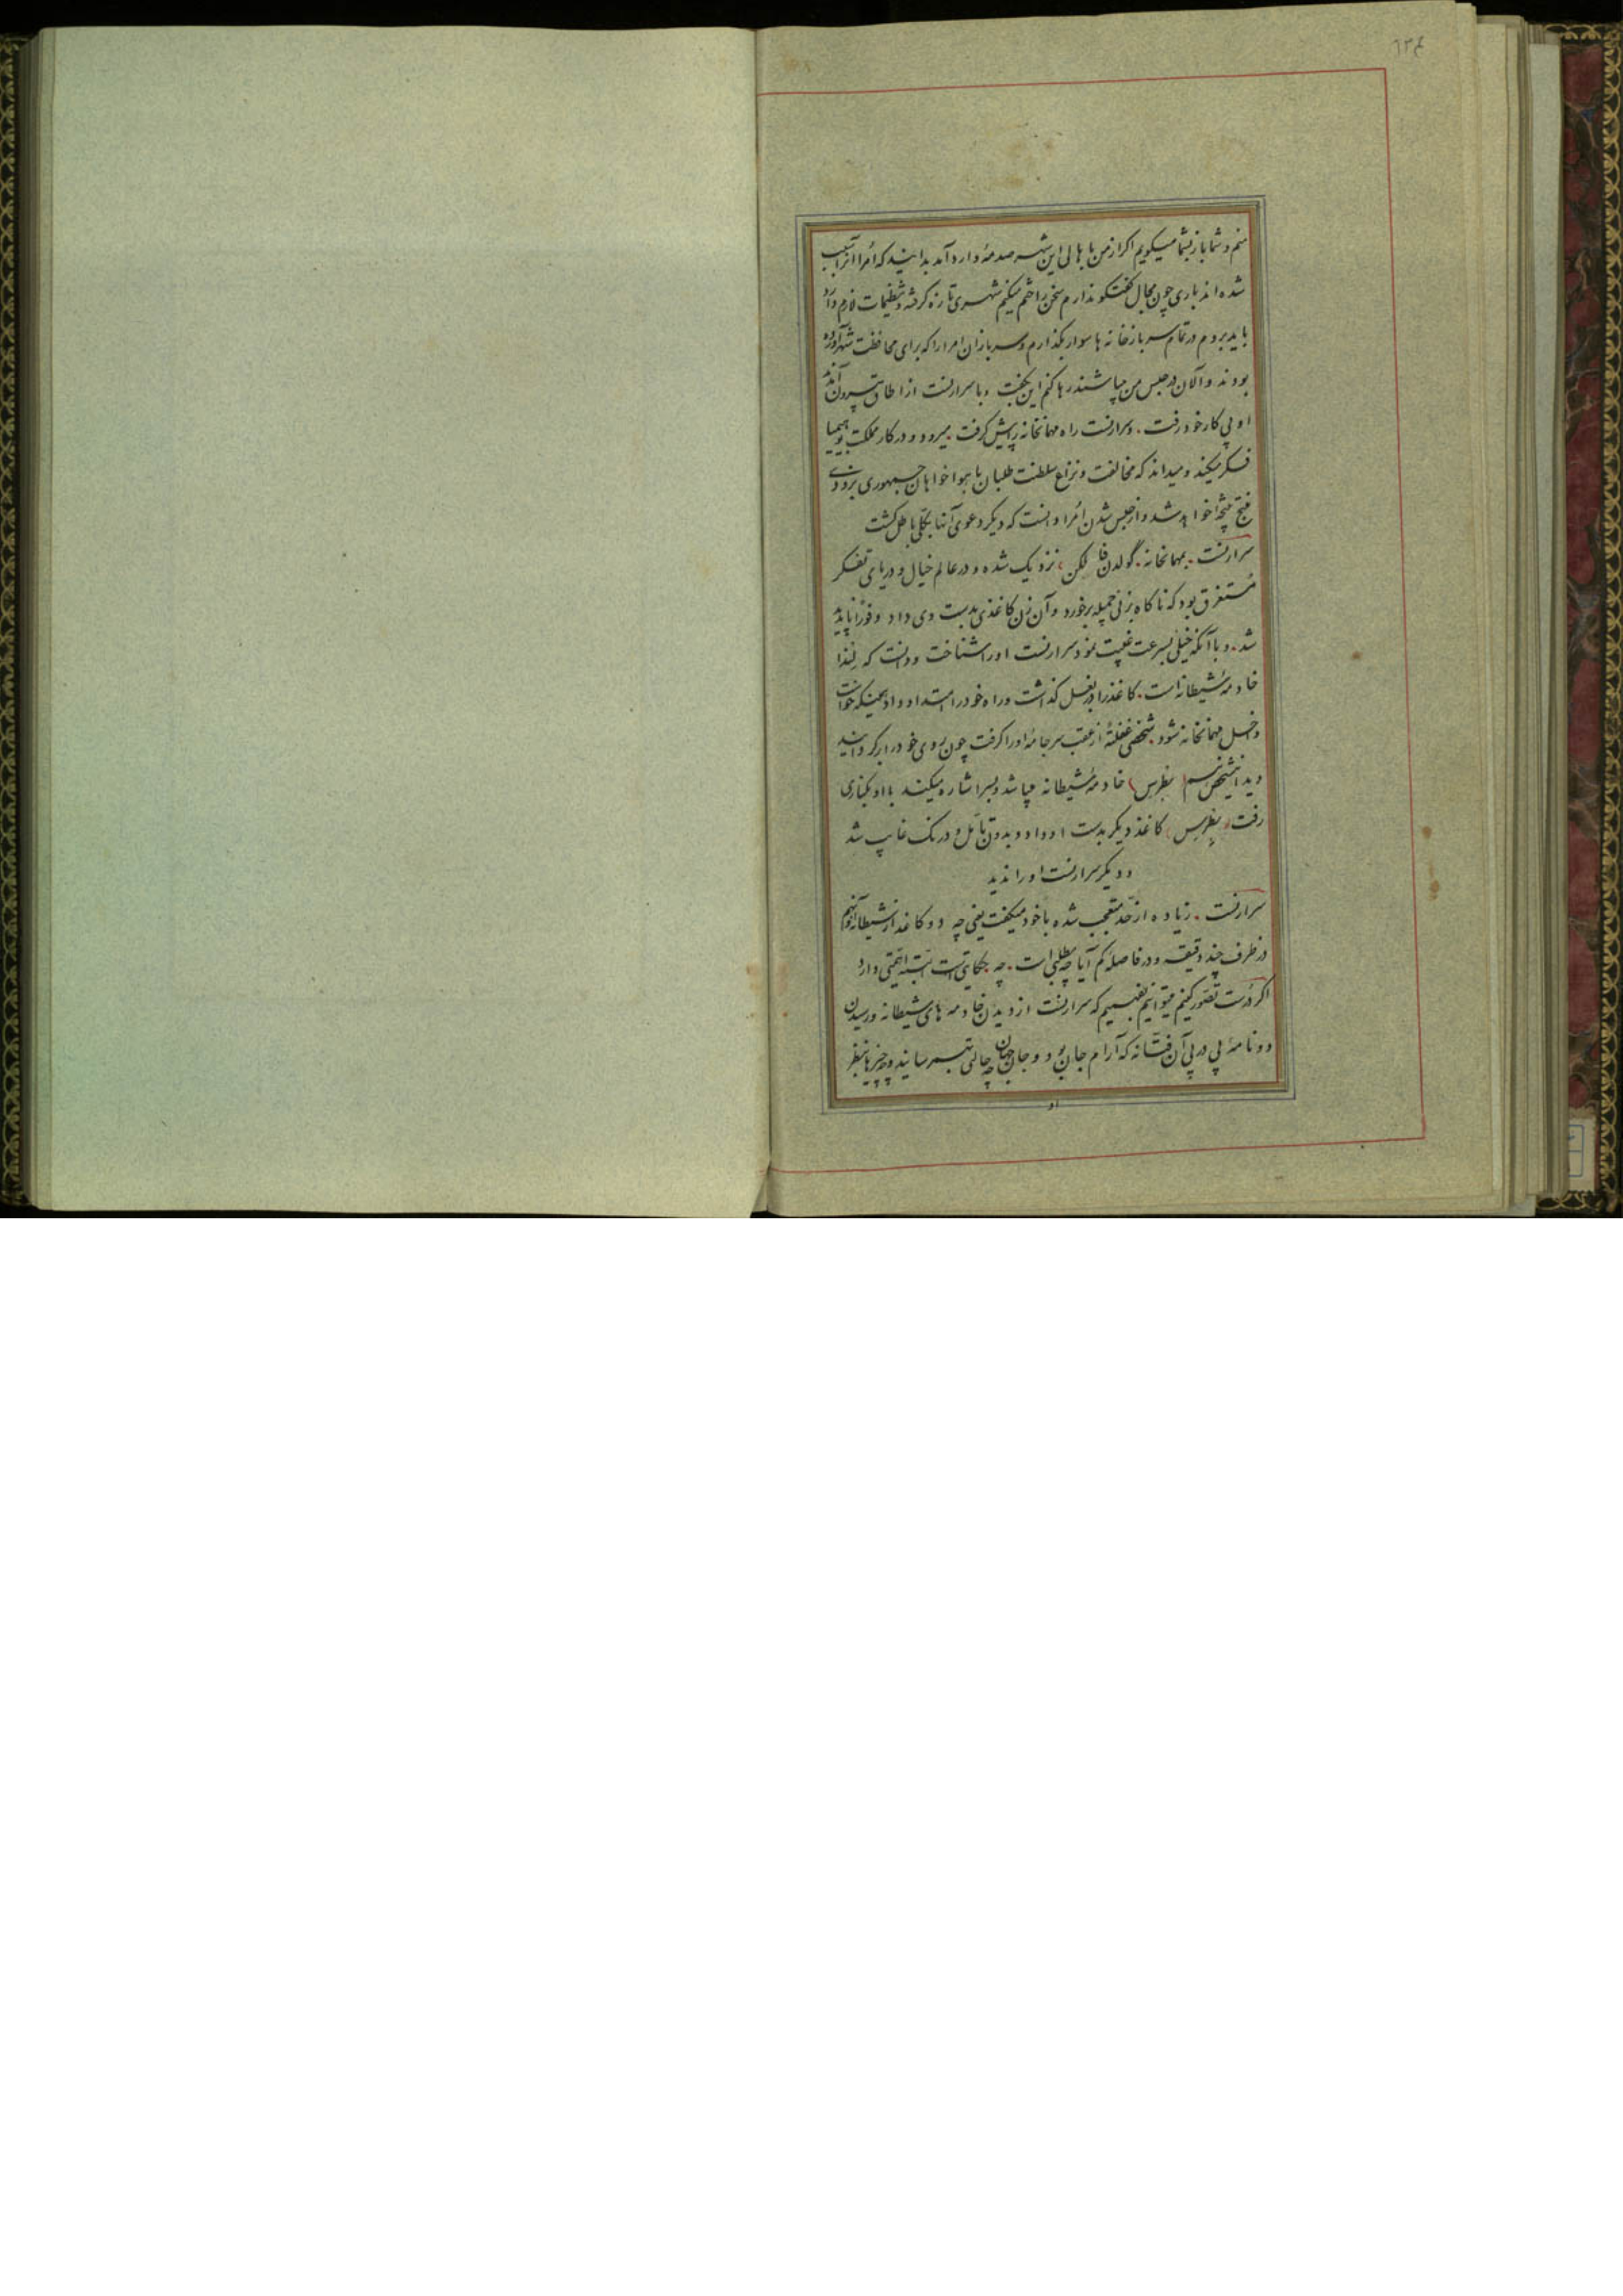 ٦٢٤
منم و شما باز بشما میکویم اکر از من باهالی این شهر صدمهٔ وارد آمد بدانید که اُمرا آنرا سبب
شده اند باری چون مجال کفتکو ندارم سخن را ختم میکنم شهری تازه کرفته و تنظیمات لازم دارد
باید بروم در تمام سربازخانه ها سوار بکذارم و سربازان امرا را که برای محافظت شهر آورده
بودند و الان در حبس من میباشند رها کنم این بکفت و با سر ارنست از اطاق بیرون آمدند
او پی کار خود رفت . و سر ارنست راه مهمانخانه را پیش کرفت . میرود و در کار مملکت بوهیمیا
فکر میکند و میداند که مخالفت و نزاع سلطنت طلبان با هواخواهان جمهوری بزودی
منتج نتیجه خواهد شد و از حبس شدن اُمرا دانست که دیکر دعوی آنها بکلی باطل کشت
سر ارنست . بمهمانخانه . گولدن فالکن ، نزدیک شده و در عالم خیال و دریای تفکر
مُستغرق بود که ناکاه بزنی جمیله برخورد و آن زن کاغذی بدست وی داد و فوراً ناپدید
شد . و با آنکه خیلی بسرعت غیبت نمود سر ارنست او را شناخت و دانست که لِنِدا
خادمهٔ شیطانه است . کاغذ را در بغل کذاشت و راه خود را امتداد داد همینکه خواست
داخل مهمانخانه شود . شخصی غفلةً از عقب سر جامهٔ او را کرفت چون روی خود را برکردانید
دید این شخص نرسم (بطرس) خادمهٔ شیطانه میباشد و بسر اشاره میکند با او بکناری
رفت و بطرس . کاغذ دیکر بدست او داد و بدون تأمّل و درنک غایب شد
و دیکر سر ارنست او را ندید
سر ارنست . زیاده از حدّ متعجب شده با خود میکفت یعنی چه دو کاغذ از شیطانه آنهم
در ظرف چند دقیقه و در فاصلهٔ کم آیا چه مطلبی است . چه حکایتی است البته اهمّیتی دارد
اکر درست تصّور کنیم میتوانیم بفهمیم که سر ارنست از دیدن خادمه های شیطانه و رسیدن
دو نامهٔ پی در پی آن فتّانه که آرام جان بود و جان جهان چه حالتی بهمرسانید و چه چیزها بنظر
او